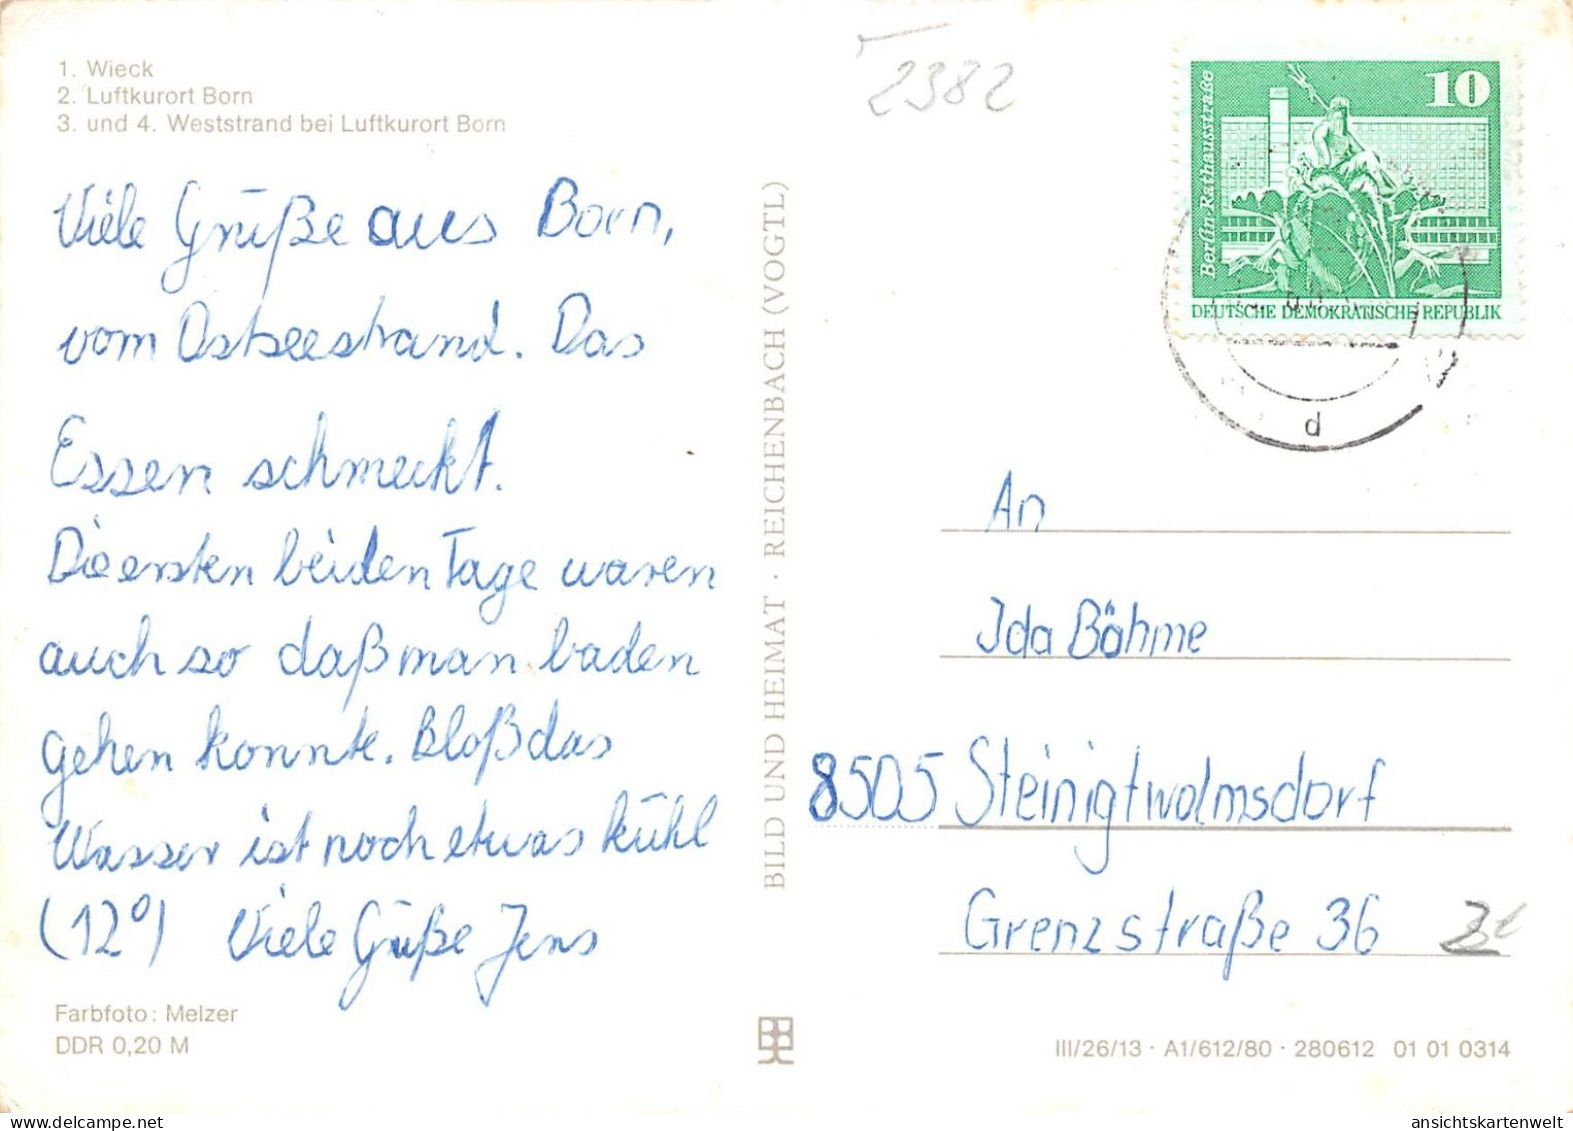 1. Wieck
2. Luftkurort Born
3. und 4. Weststrand bei Luftkurort Born
Viele Grüße aus Born,
vom Ostseestrand. Das
Essen schmeckt.
Die ersten beiden Tage waren
auch so daß man baden
gehen konnte. Bloß das
Wasser ist noch etwas kühl
(12°) Viele Güße Jens
Farbfoto: Melzer
DDR 0,20 M
BILD UND HEIMAT · REICHENBACH (VOGTL)
2382
10
Berlin-Rathausstraße
DEUTSCHE DEMOKRATISCHE REPUBLIK
d
An
Ida Böhme
8505 Steinigtwolmsdorf
Grenzstraße 36
III/26/13 · A1/612/80 · 280612 01 01 0314
ansichtskartenwelt.com